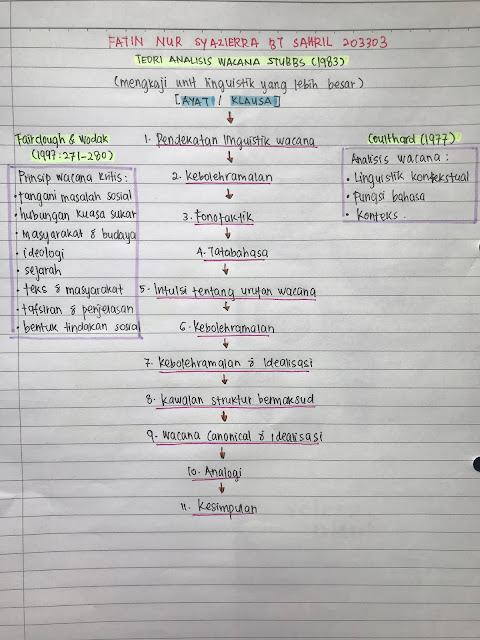 FATIN NUR SYAZIERRA BT SAHRIL 203303
TEORI ANALISIS WACANA STUBBS (1983)
(mengkaji unit linguistik yang lebih besar)
[AYAT / KLAUSA]
Fairclough & Wodak
(1997:271-280)
Prinsip wacana kritis:
• tangani masalah sosial
• hubungan kuasa sukar
• masyarakat & budaya
• ideologi
• sejarah
• teks & masyarakat
• tafsiran & penjelasan
• bentuk tindakan sosial
1. Pendekatan linguistik wacana
2. Kebolehramalan
3. Fonotaktik
4. Tatabahasa
5. Intuisi tentang urutan wacana
6. Kebolehramalan
7. Kebolehramalan & Idealisasi
8. Kawalan struktur bermaksud
9. Wacana Canonical & idealisasi
10. Analogi
11. Kesimpulan
Coulthard (1977)
Analisis wacana:
• Linguistik kontekstual
• Fungsi bahasa
• Konteks.